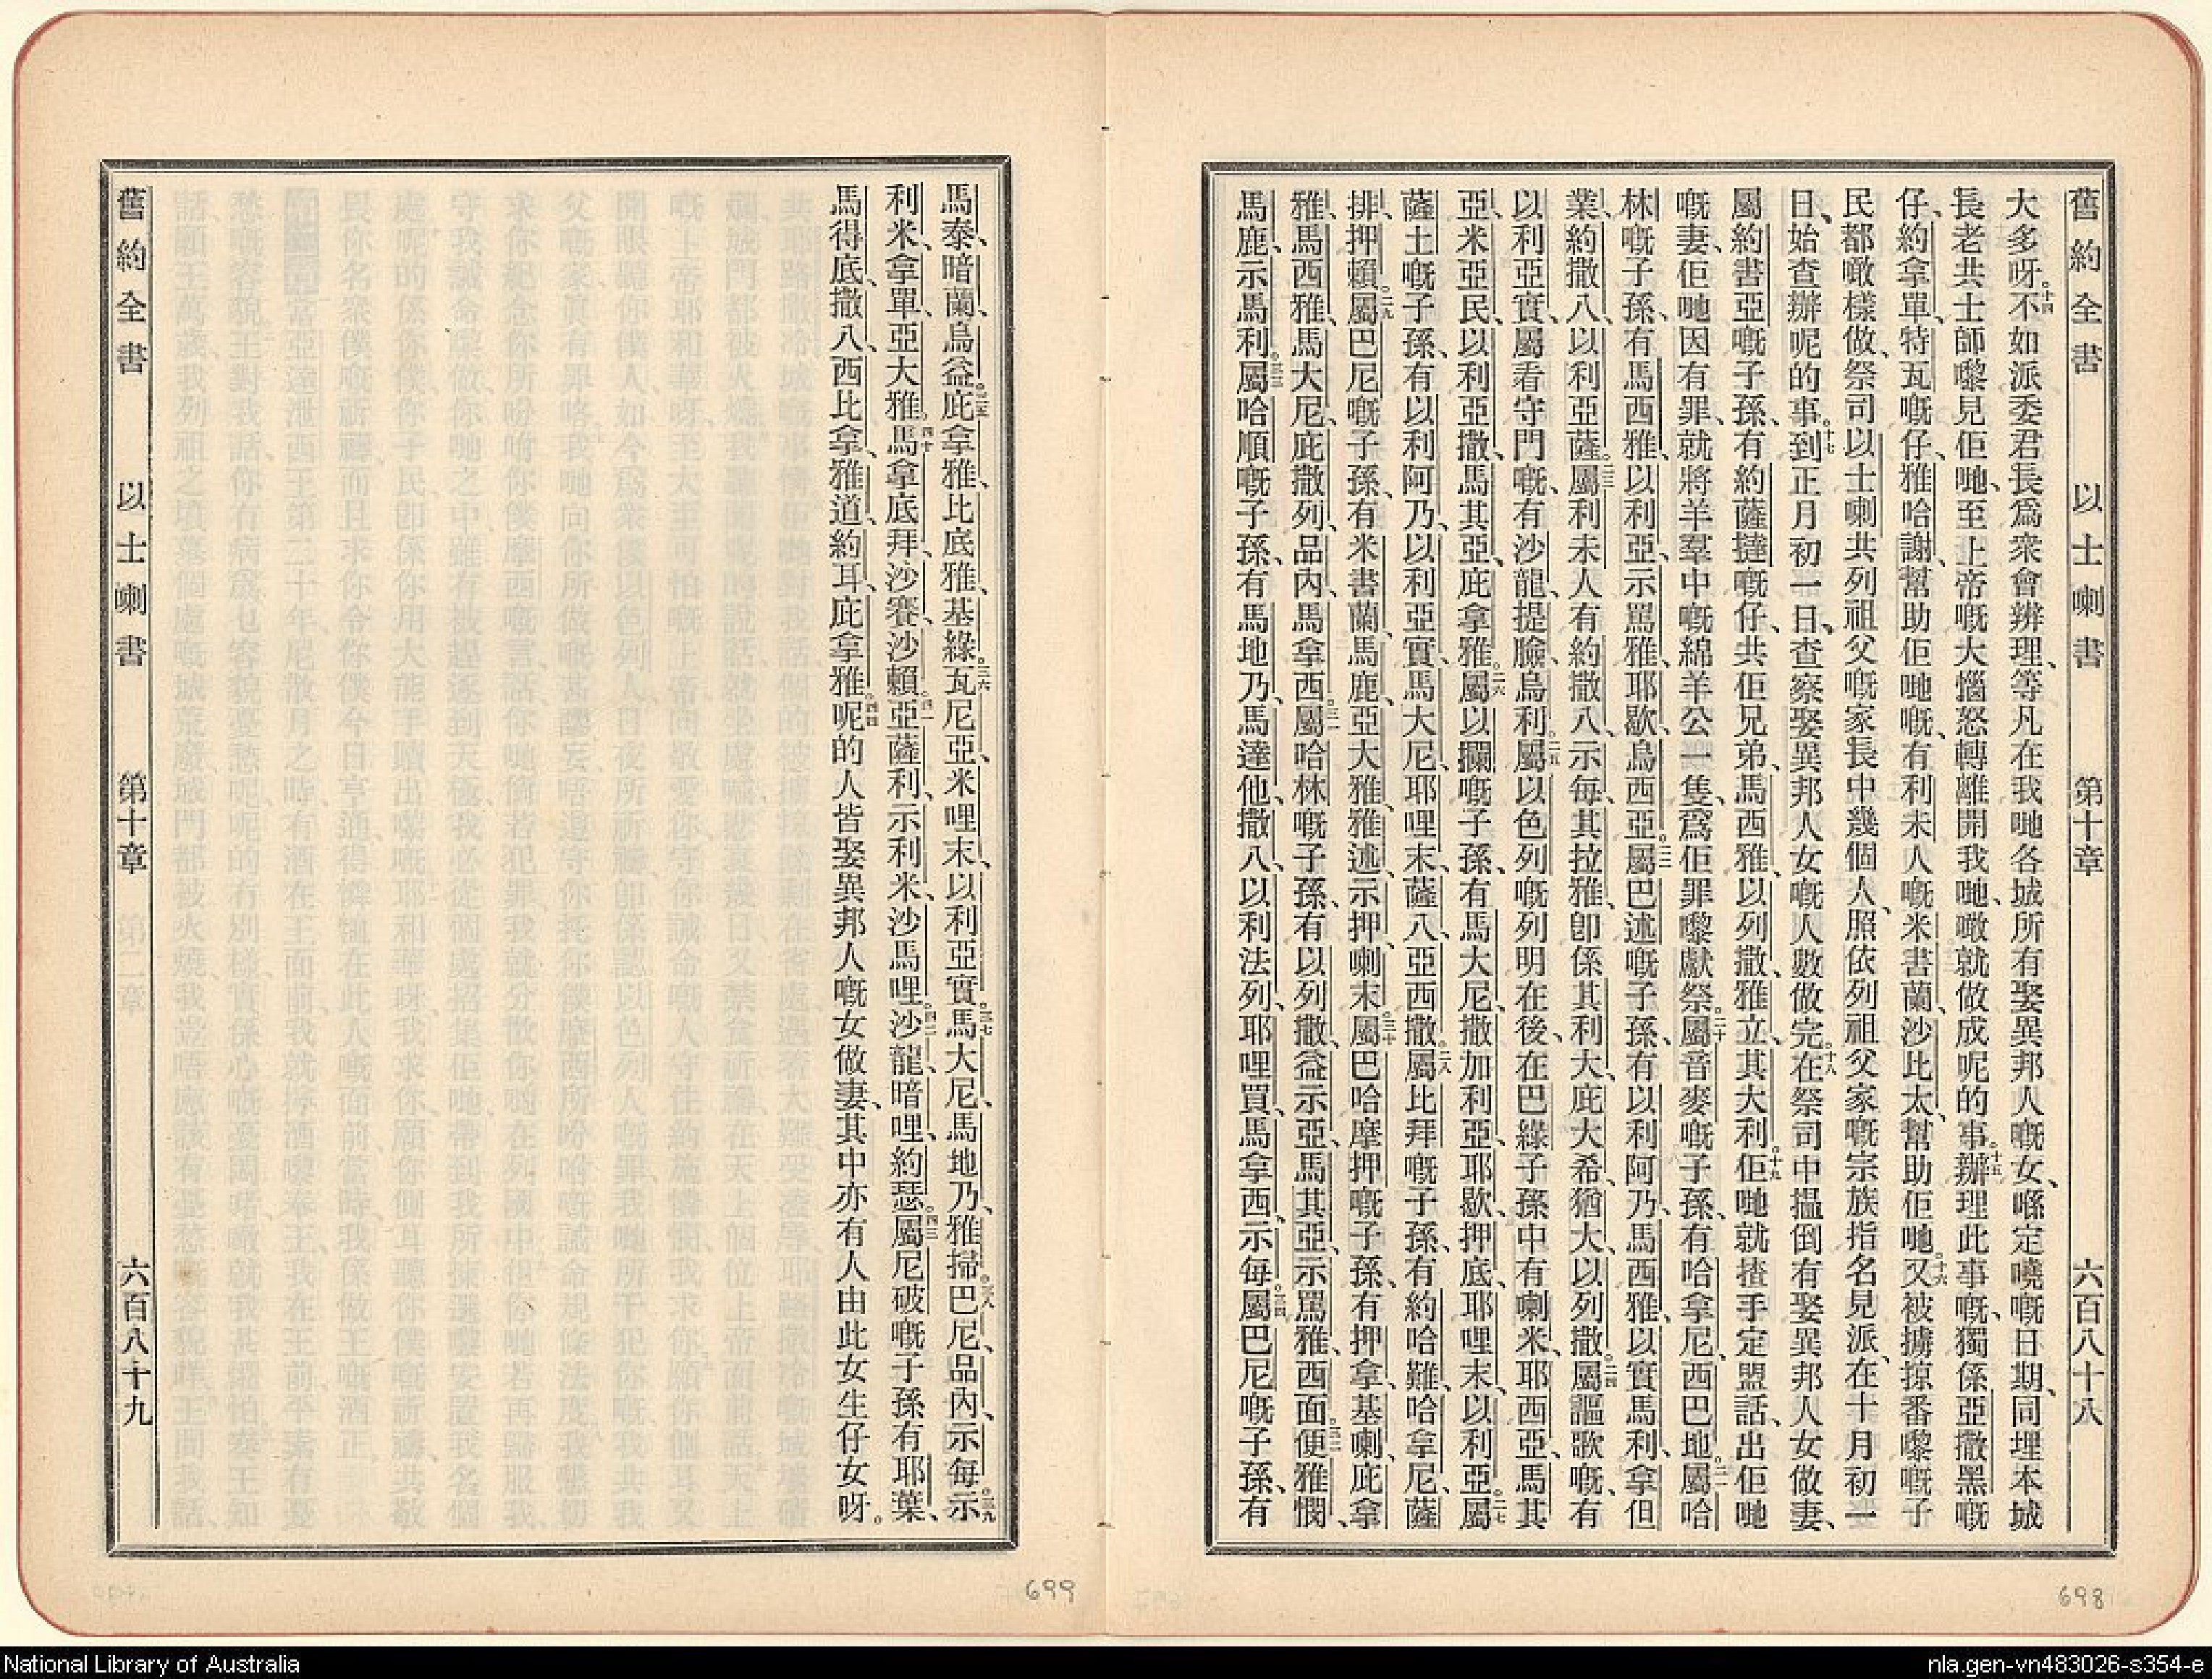 舊約全書 以士喇書 第十章 六百八十八
大多呀。十四不如派委君長爲衆會辨理、等凡在我哋各城所有娶異邦人嘅女、喺定曉嘅日期、同埋本城
長老共士師嚟見佢哋、至上帝嘅大惱怒轉離開我哋、噉就做成呢的事。十五辦理此事嘅、獨係亞撒黑嘅
仔、約拿單、特瓦嘅仔、雅哈謝、幫助佢哋嘅、有利未人嘅米書蘭、沙比太、幫助佢哋。十六又被擄掠番嚟嘅子
民都噉樣做、祭司以士喇共列祖父嘅家長中幾個人、照依列祖父家嘅宗族指名見派、在十月初一
日、始查辦呢的事。十七到正月初一日、查察娶異邦人女嘅人數做完。十八在祭司中搵倒有娶異邦人女做妻、
屬約書亞嘅子孫、有約薩撻嘅仔、共佢兄弟、馬西雅、以列撒、雅立、其大利。十九佢哋就揸手定盟話、出佢哋
嘅妻、佢哋因有罪、就將羊羣中嘅綿羊公一隻、爲佢罪嚟獻祭。二十屬音麥嘅子孫、有哈拿尼、西巴地。二一屬哈
林嘅子孫、有馬西雅、以利亞、示罵雅、耶歇、烏西亞。二二屬巴述嘅子孫、有以利阿乃、馬西雅、以實馬利、拿但
業、約撒八、以利亞薩。二三屬利未人有約撒八、示每、其拉雅、卽係其利大、庇大希、猶大、以列撒。二四屬謳歌嘅、有
以利亞實、屬看守門嘅、有沙龍、提臉、烏利。二五屬以色列嘅列明在後、在巴綠子孫中有喇米、耶西亞、馬其
亞、米亞民、以利亞撒、馬其亞、庇拿雅。二六屬以攔嘅子孫、有馬大尼、撒加利亞、耶歇、押底、耶哩末、以利亞。二七屬
薩土嘅子孫、有以利阿乃、以利亞實、馬大尼、耶哩末、薩八、亞西撒。二八屬比拜嘅子孫、有約哈難、哈拿尼、薩
排、押賴。二九屬巴尼嘅子孫、有米書蘭、馬鹿、亞大雅、雅述、示押、喇末。三十屬巴哈摩押嘅子孫、有押拿、基喇、庇拿
雅、馬西雅、馬大尼、庇撒列、品內、馬拿西。三一屬哈林嘅子孫、有以列撒、益示亞、馬其亞、示罵雅、西面。三二便雅憫、
馬鹿、示馬利。三三屬哈順嘅子孫、有馬地乃、馬達他、撒八、以利法列、耶哩買、馬拿西、示每。三四屬巴尼嘅子孫、有
698
舊約全書 以士喇書 第十章 六百八十九
馬泰、暗蘭、烏益。三五庇拿雅、比底雅、基綠。三六瓦尼亞、米哩末、以利亞實。三七馬大尼、馬地乃、雅掃。三八巴尼、品內、示每。三九示
利米、拿單、亞大雅。四十馬拿底拜、沙賽、沙賴。四一亞薩利、示利米、沙馬哩。四二沙龍、暗哩、約瑟。四三屬尼破嘅子孫有耶葉、
馬得底、撒八、西比拿、雅道、約耳、庇拿雅。四四呢的人皆娶異邦人嘅女做妻、其中亦有人由此女生仔女呀。
699
National Library of Australia
nla.gen-vn483026-s354-e